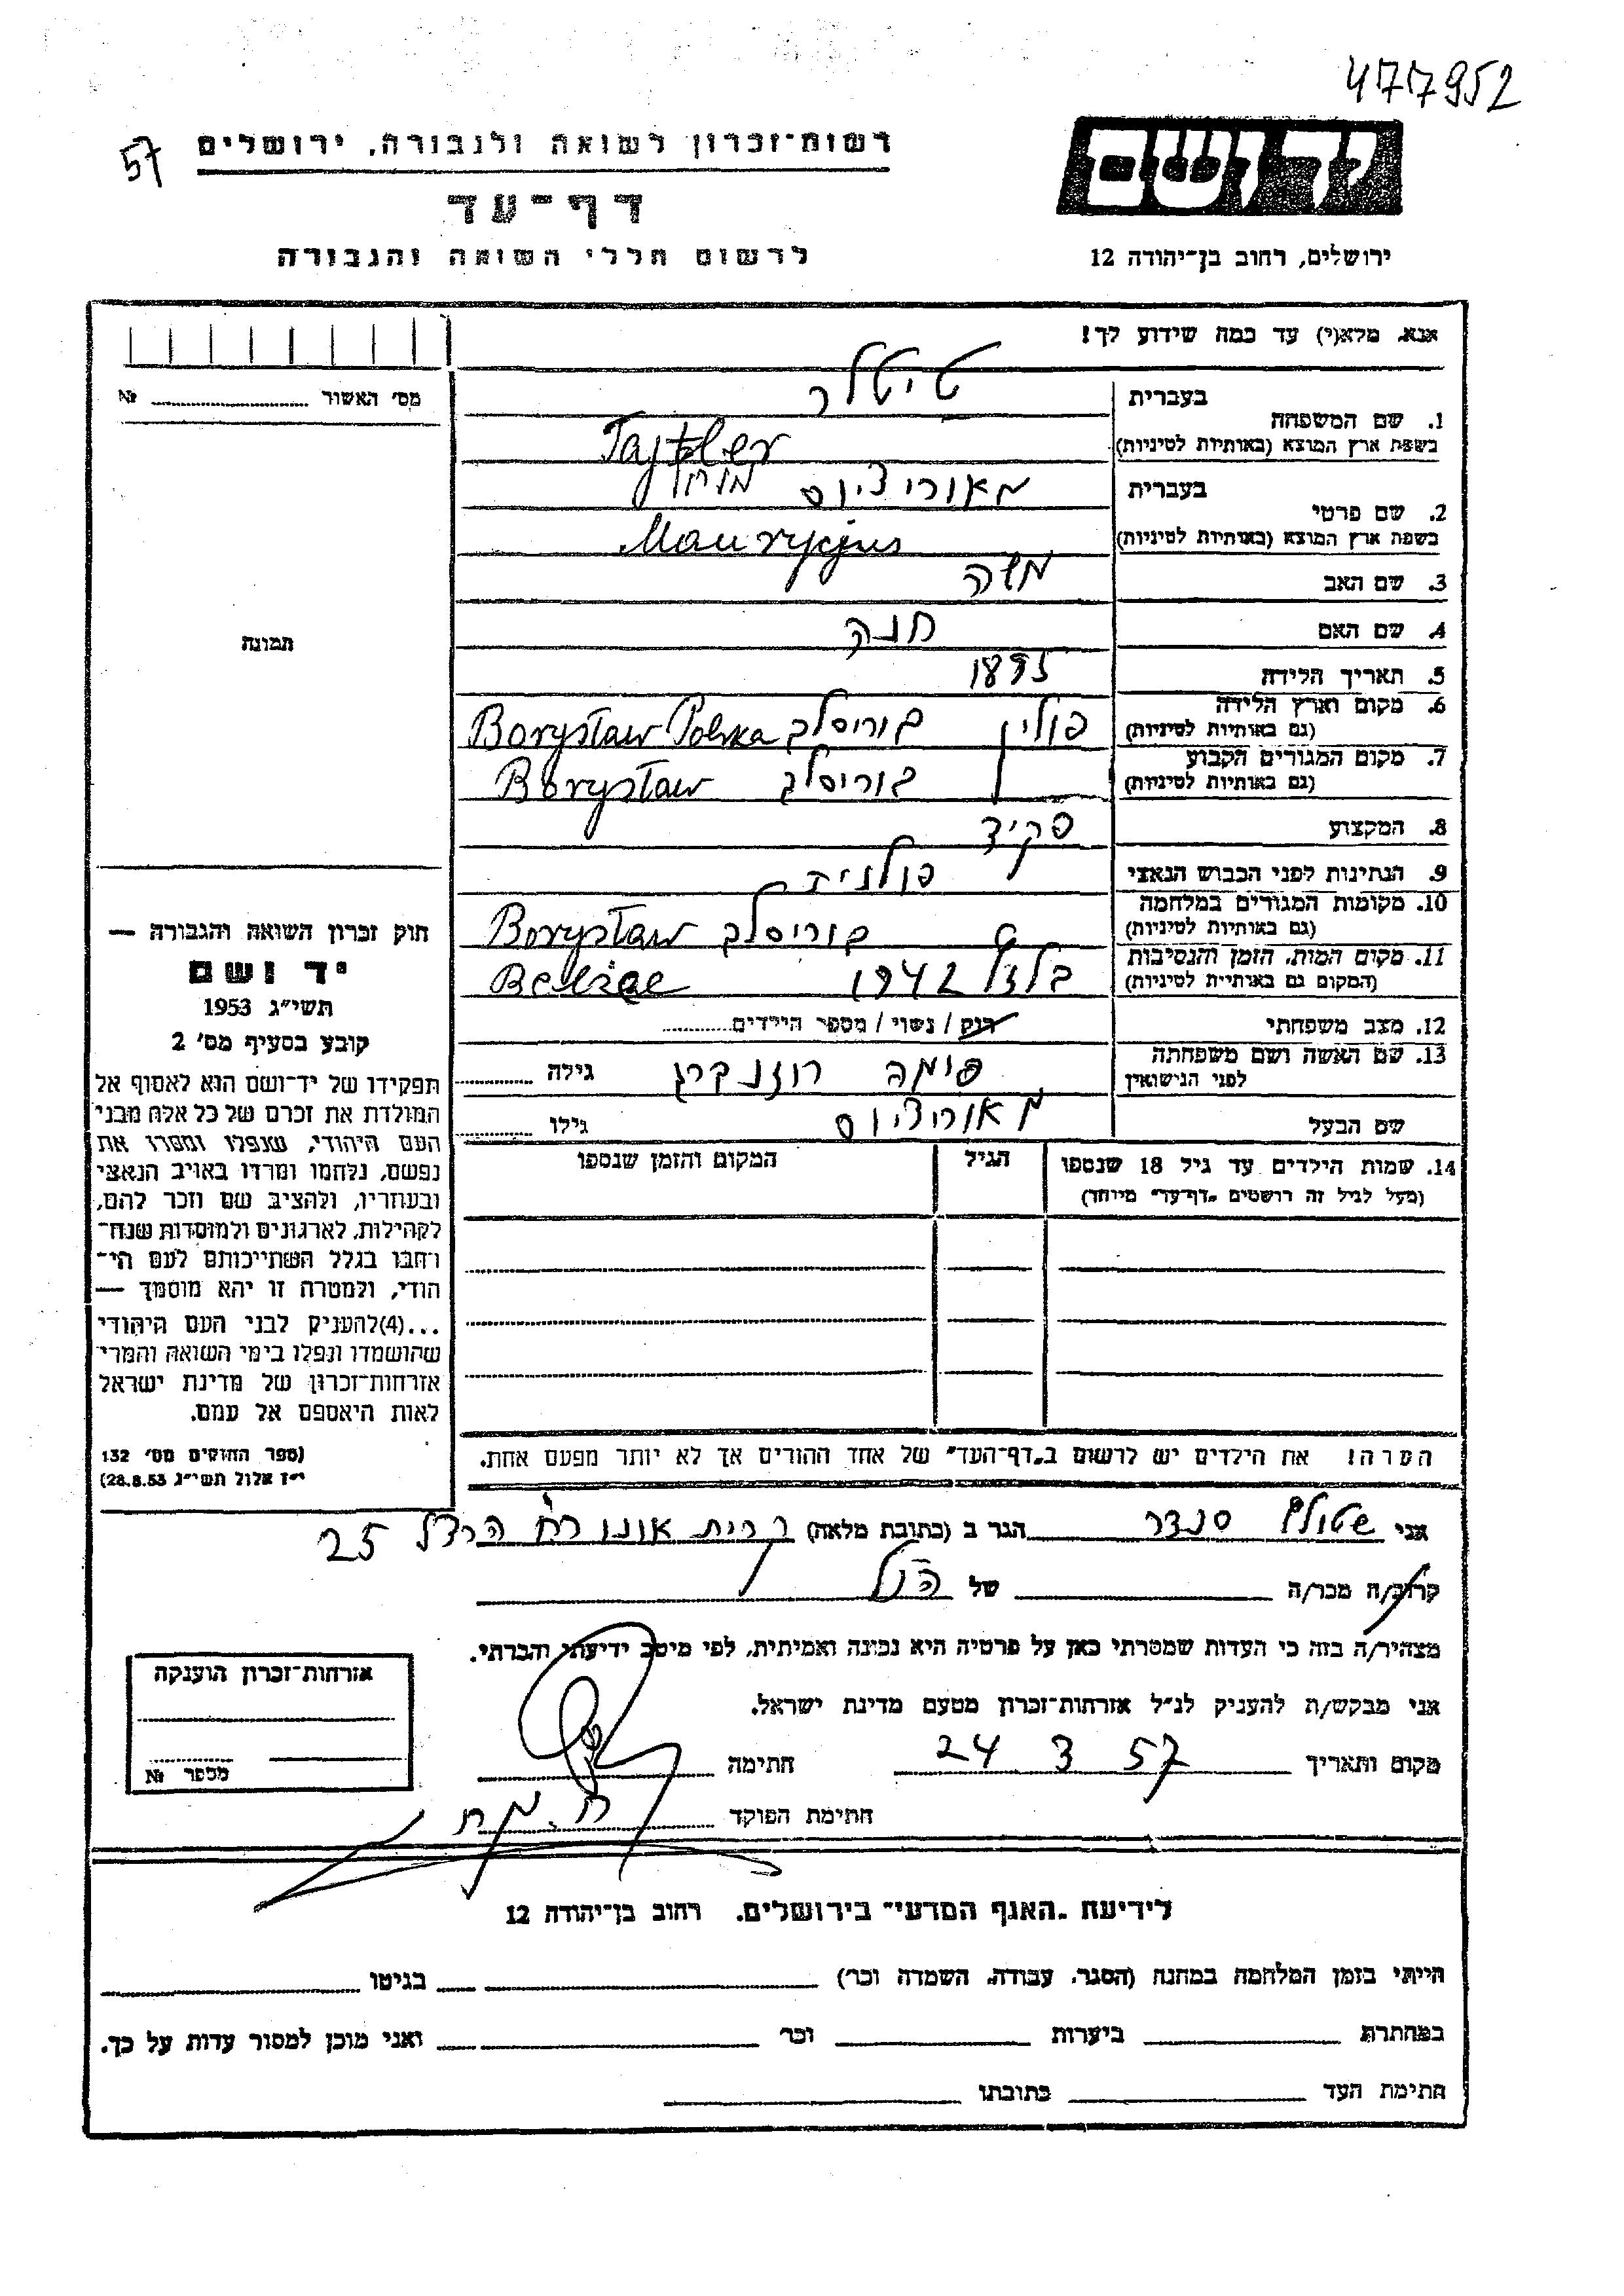 477952
57
רשות-זכרון לשואה ולגבורה, ירושלים
יד ושם
דף-עד
לרשום חללי השואה והגבורה
ירושלים, רחוב בן-יהודה 12
אנא, מלא(י) עד כמה שידוע לך!
מס' האשור ........ №
1. שם המשפחה בעברית טיטלר
בשפת ארץ המוצא (באותיות לטיניות) Tajtler
2. שם פרטי בעברית מאוריציוס
בשפת ארץ המוצא (באותיות לטיניות) Maurycjus
3. שם האב משה
4. שם האם חנה
5. תאריך הלידה 1895
6. מקום וארץ הלידה (גם באותיות לטיניות) פולין בוריסלב Borystaw Polska
7. מקום המגורים הקבוע (גם באותיות לטיניות) בוריסלב Borystaw
8. המקצוע פקיד
9. הנתינות לפני הכבוש הנאצי פולנית
10. מקומות המגורים במלחמה (גם באותיות לטיניות) בוריסלב Borystaw
11. מקום המות, הזמן והנסיבות (המקום גם באותיות לטיניות) בלזל 1942
12. מצב משפחתי רוק / נשוי / מספר הילדים........
13. שם האשה ושם משפחתה לפני הנישואין רוזנברג גילה ........
שם הבעל מאוריציוס גילו ........
14. שמות הילדים עד גיל 18 שנספו
(מעל לגיל זה רושמים "דף-עד" מיוחד)
הגיל
המקום והזמן שנספו
הערה! את הילדים יש לרשום ב"דף-העד" של אחד ההורים אך לא יותר מפעם אחת.
תמונה
חוק זכרון השואה והגבורה —
יד ושם
תשי"ג 1953
קובע בסעיף מס' 2
תפקידו של יד-ושם הוא לאסוף אל
המולדת את זכרם של כל אלה מבני
העם היהודי, שנפלו ומסרו את
נפשם, נלחמו ומרדו באויב הנאצי
ובעוזריו, ולהציב שם וזכר להם,
לקהילות, לארגונים ולמוסדות שנח-
רחבו בגלל השתייכותם לעם הי-
הודי, ולמטרה זו יהא מוסמך —
...(4)להעניק לבני העם היהודי
שהושמדו ונפלו בימי השואה והמרי
אזרחות-זכרון של מדינת ישראל
לאות היאספם אל עמם.
(ספר החוקים מס' 132
י"ז אלול תשי"ג 28.8.53)
אני סנדר הגר ב (כתובת מלאה) קרית אונו רח הרצל 25
קרוב/ה מכר/ה של הנ"ל
מצהיר/ה בזה כי העדות שמסרתי כאן על פרטיה היא נכונה ואמיתית, לפי מיטב ידיעתי והכרתי.
אני מבקש/ת להעניק לנ"ל אזרחות-זכרון מטעם מדינת ישראל.
מקום ותאריך 24 3 57 חתימה
חתימת הפוקד
אזרחות-זכרון הוענקה
מספר №
לידיעת "האגף המדעי" בירושלים. רחוב בן-יהודה 12
הייתי בזמן המלחמה במחנה (הסגר, עבודה, השמדה וכו') בגיטו
במחתרת ביערות וכו' ואני מוכן למסור עדות על כך.
חתימת העד כתובתו